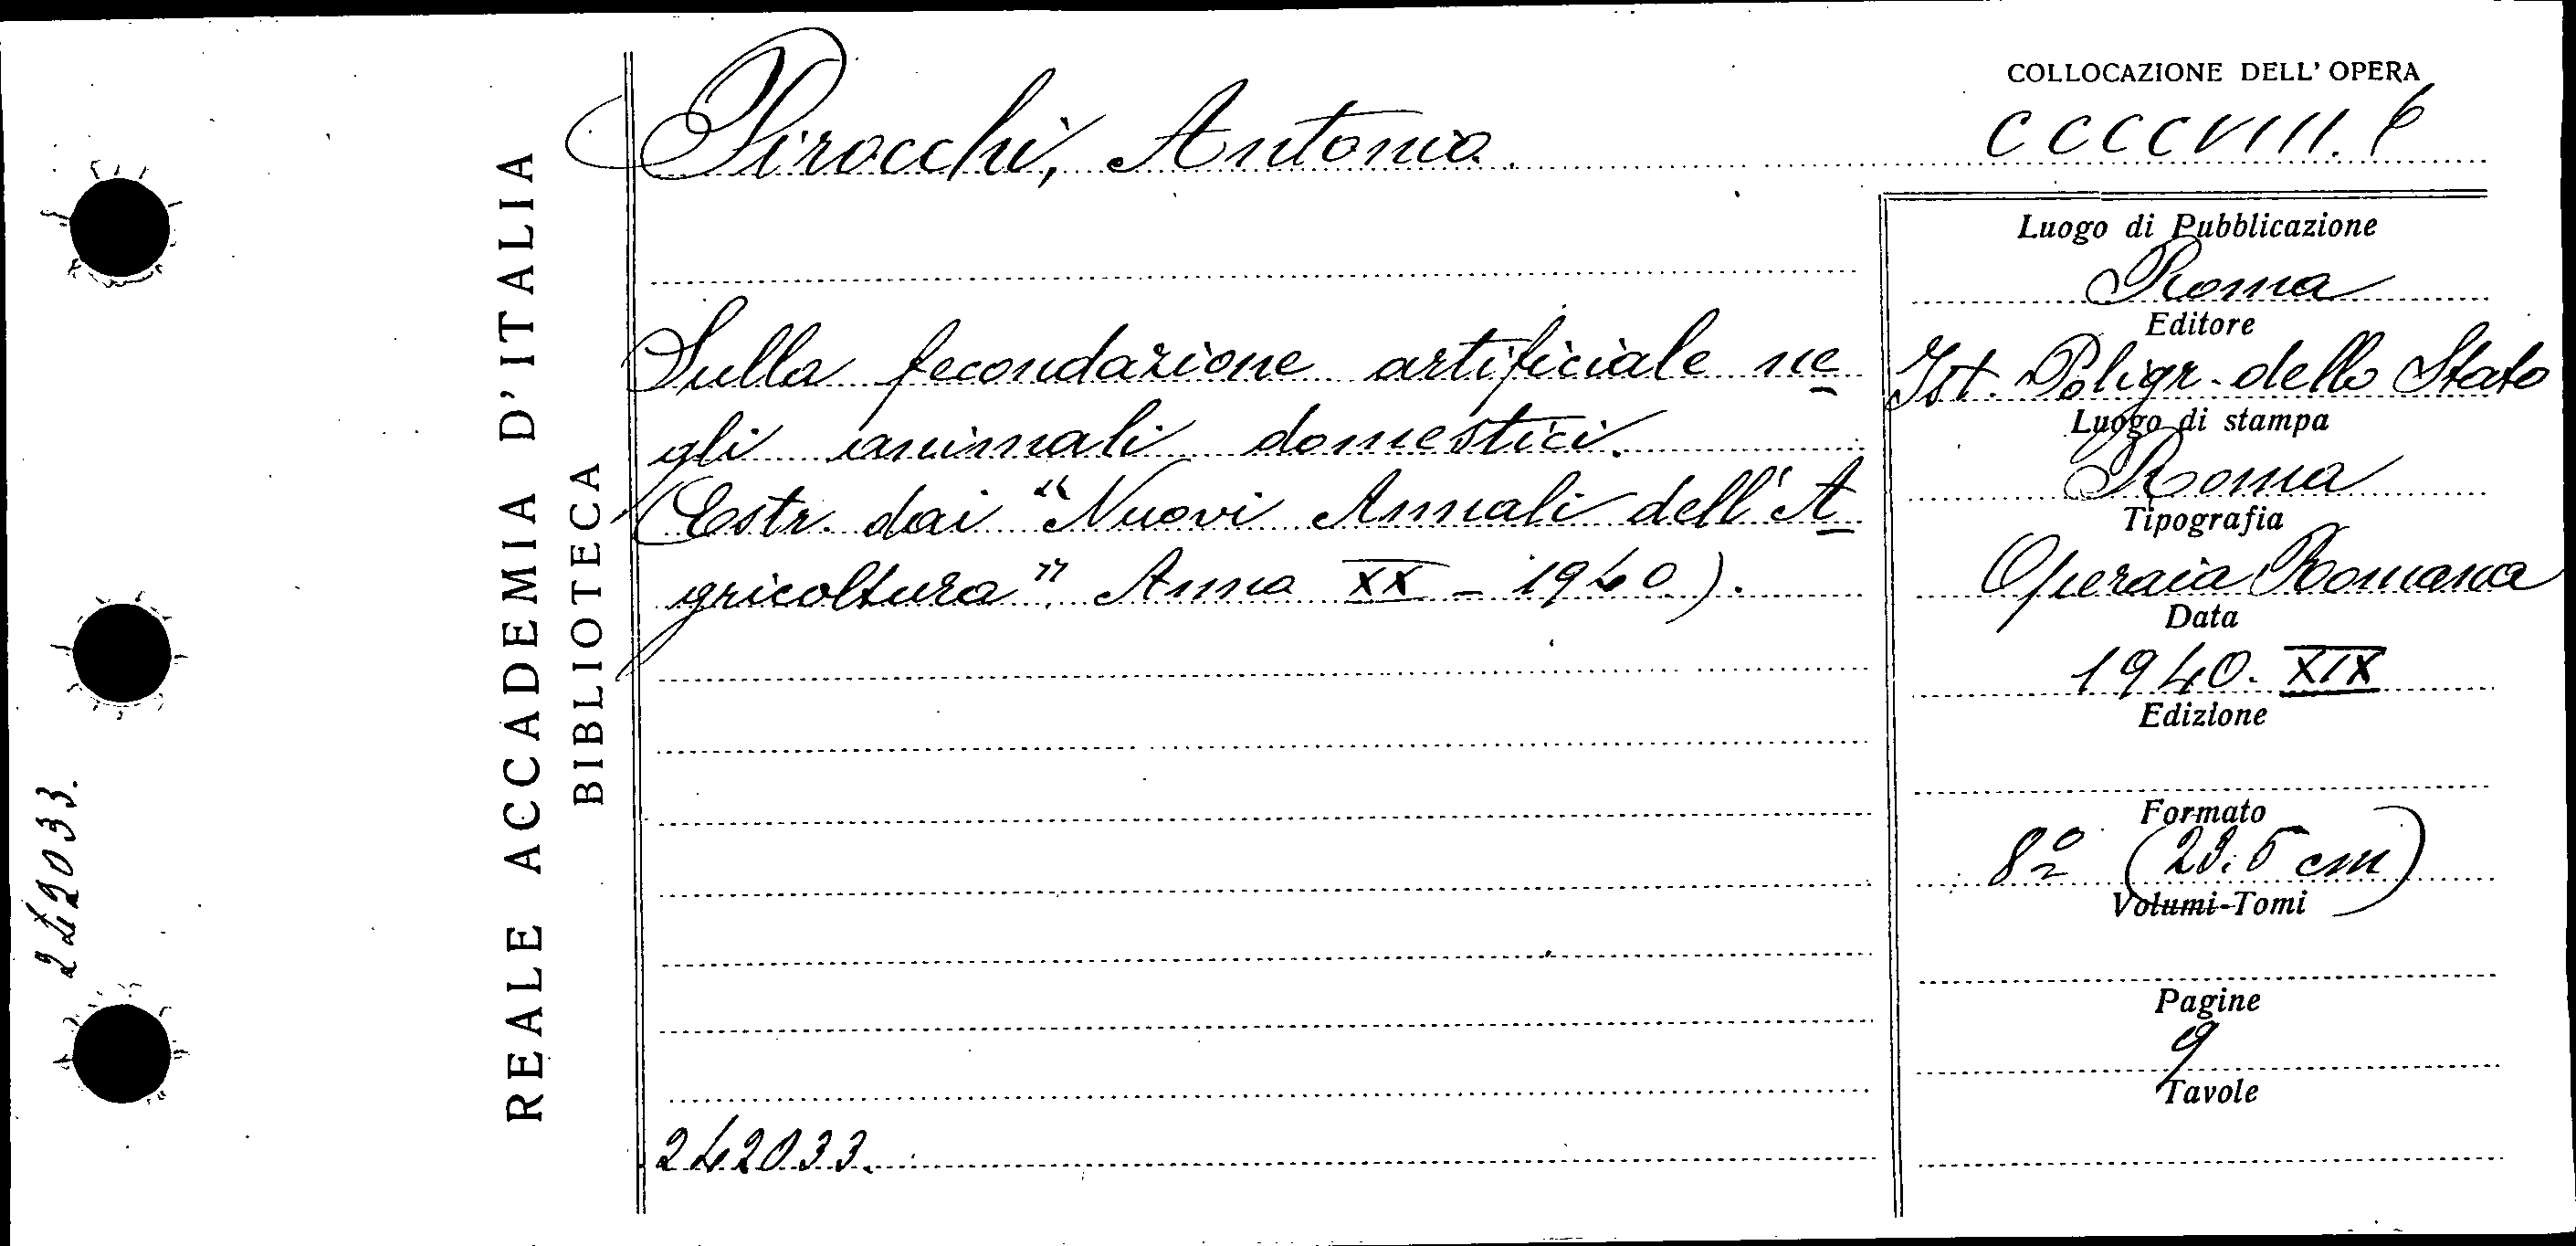 COLLOCAZIONE DELL' OPERA
CCCCVIII. 6
Pirocchi, Antonio.
Sulla fecondazione artificiale ne
gli animali domestici.
(Estr. dai "Nuovi Annali dell'A
gricoltura" Anno XX - 1940).
242033.
Luogo di Pubblicazione
Roma
Editore
Ist. Poligr. dello Stato
Luogo di stampa
Roma
Tipografia
Operaia Romana
Data
1940. XIX
Edizione
Formato
8º (23.5 cm)
Volumi-Tomi
Pagine
9
Tavole
REALE ACCADEMIA D'ITALIA
BIBLIOTECA
242033.